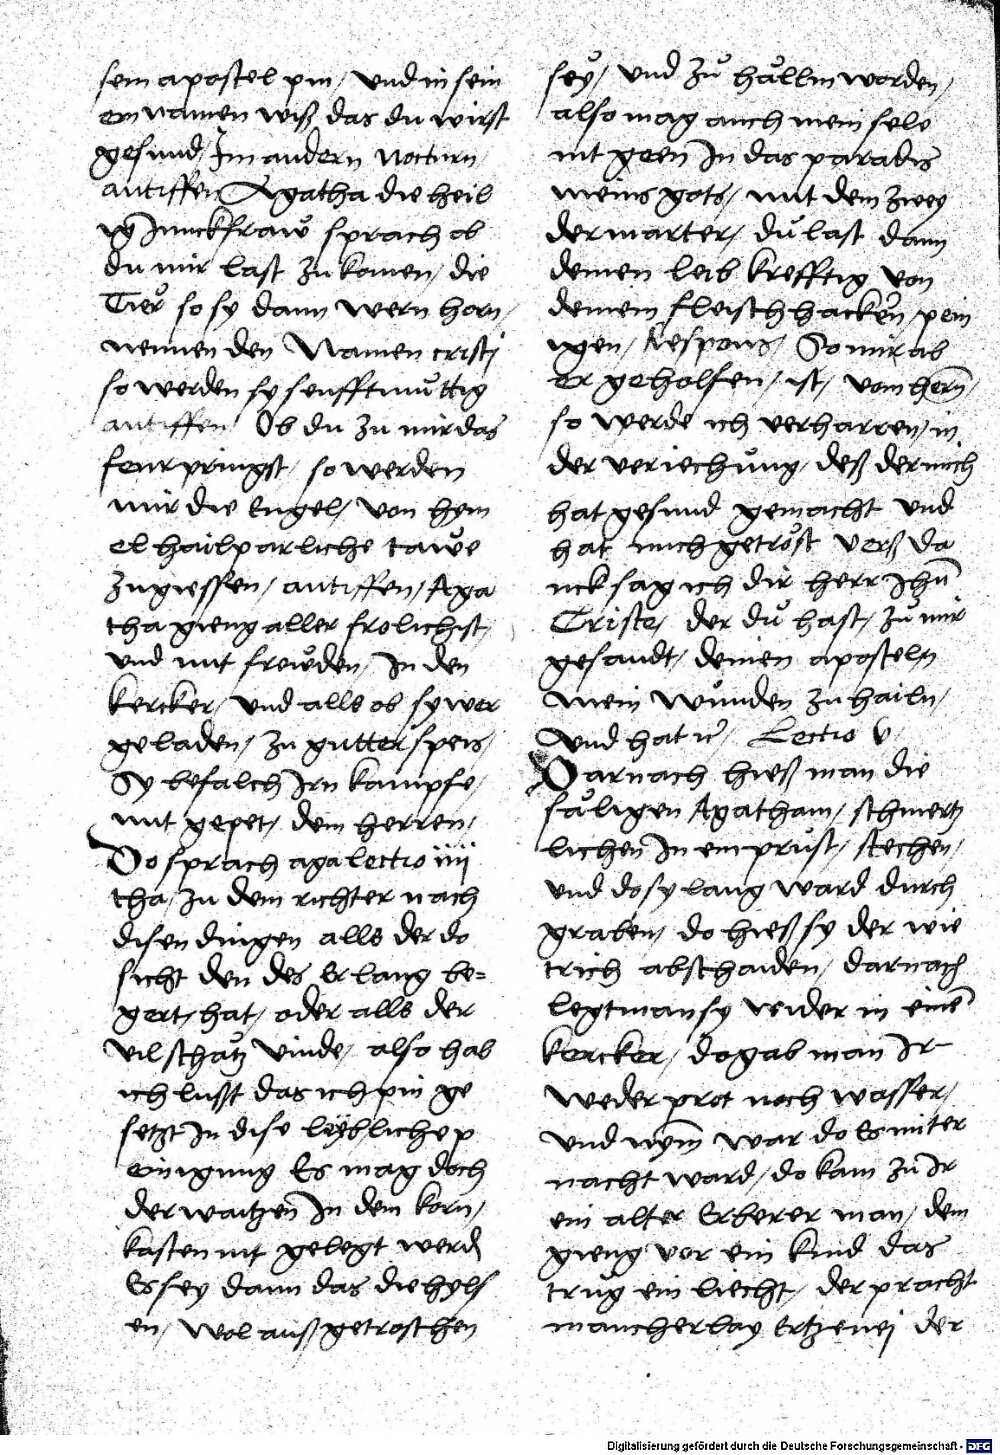 sein apostel pin / und in sein
em namen wiß das du wirst
gesund / Im andern Nocturn /
antiffen Agatha die heil
ig Junckfraw sprach ob
du mir last zu komen / die
Tier so sy dann wern horn /
nennen den Namen cristi
so werden sy senfftmüttig
antiffen / Ob du zu mir das
feur pringst / so werden
mir die Engel / von hym
el hailparliche tawe
zugiessen / antiffen / Aga
tha gieng aller frolichist /
und mit frowden / In den
kercker / und alls ob sy wer
geladen / zu gutter speis /
Sy befalch Irn kampfe /
mit gepet / dem herren /
Do sprach aga lectio iiij
tha / zu dem richter nach
disen dingen alls der do
sicht den des Er lang be=
gert / hat / oder alls der
vil schatz vinde / also hab
ich lusst das ich pin ge
setzt In dise leybliche p
einigung Es mag doch
der waitzen In dem korn /
kasten nit gelegt werd
Es sey dann das die hyls
en / wol auß getroschen
sey / und zu hallm worden /
also mag auch mein sele
nit geen In das paradis
meins gots / mit dem zwey
der marter / du last dann
deinen leib krefftig von
deinem fleischhacken / pein
igen / Respons / So mir ab
er geholfen / ist / vom hern /
so werde ich verharren / in
der veriechung / deß der mich
hat gesund gemacht und
hat mich getröst verß da
nck sag ich dir herr Jhu
Criste / der du hast / zu mir
gesandt / deinen aposteln
mein wunden zu hailn /
Und hat ir / Lectio v
Darnach hieß man die
säligen Agatham / schmertz
lichen In ein prust / stechen /
und do sy lang ward durch
graben / do hieß sy der wie
trich abschaiden / darnach
legt man sy wider in einen
kercker / do gab man Ir
weder prot noch wasser /
und nym war do Es miter
nacht ward / do kam zu Ir
ein alter Erberer man / dem
gieng vor ein kind das
trug ein liecht / der pracht
mancherlay Ertzenei der
Digitalisierung gefördert durch die Deutsche Forschungsgemeinschaft - DFG